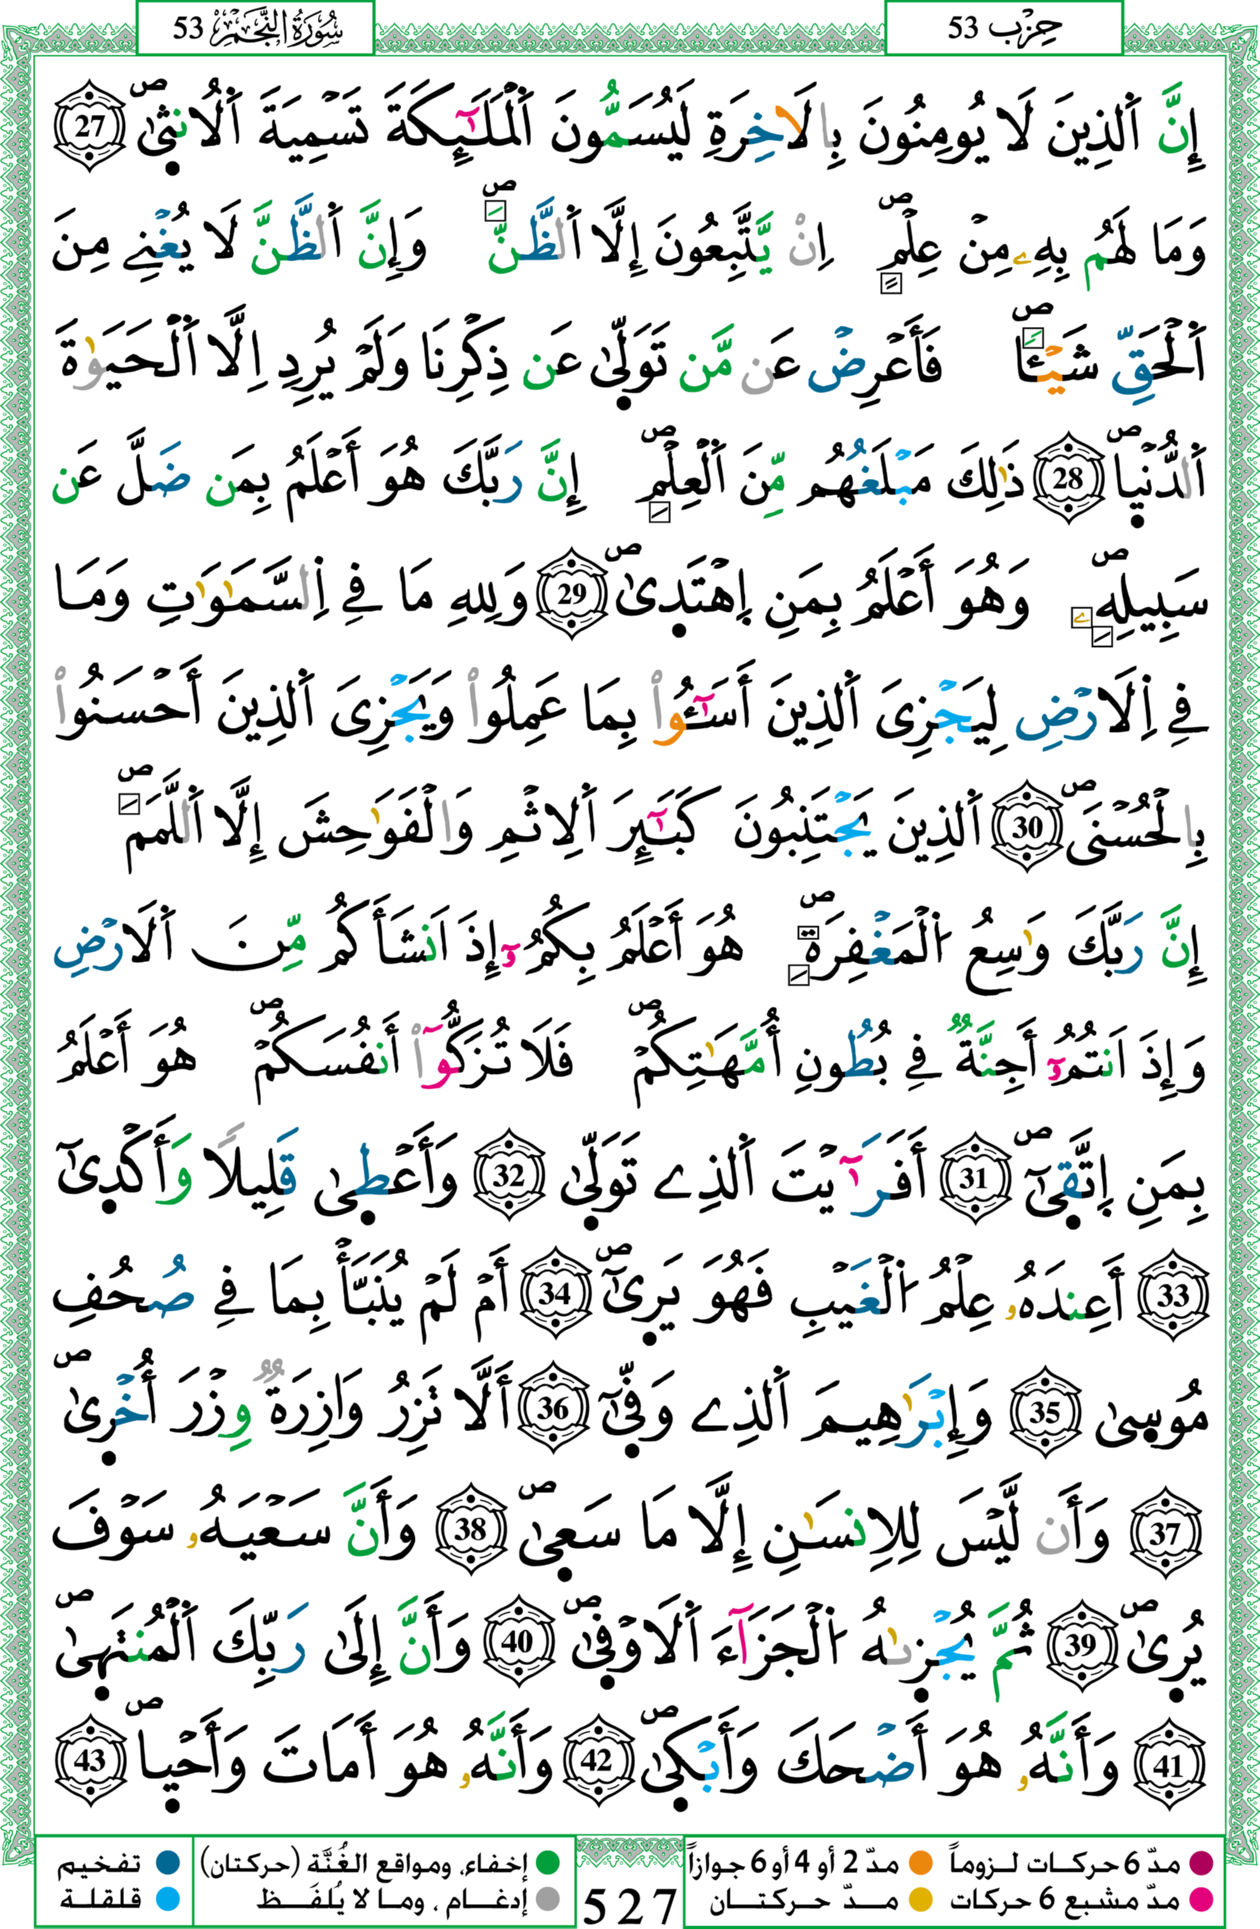 سُورَةُ النَّجْمِ 53
حِزْب 53
إِنَّ اَ۬لذِينَ لَا يُومِنُونَ بِالَاخِرَةِ لَيُسَمُّونَ اَ۬لْمَلَٰٓئِكَةَ تَسْمِيَةَ اَ۬لُانث۪ىٰۖ 27
وَمَا لَهُم بِهِۦ مِنْ عِلْمٍۖ اِنْ يَّتَّبِعُونَ إِلَّا اَ۬لظَّنَّۖ وَإِنَّ اَ۬لظَّنَّ لَا يُغْنِے مِنَ
اَ۬لْحَقِّ شَيْـٔاًۖ فَأَعْرِضْ عَن مَّن تَوَلّ۪ىٰ عَن ذِكْرِنَا وَلَمْ يُرِدِ اِلَّا اَ۬لْحَيَوٰةَ
اَ۬لدُّنْي۪اۖ 28 ذَٰلِكَ مَبْلَغُهُم مِّنَ اَ۬لْعِلْمِۖ إِنَّ رَبَّكَ هُوَ أَعْلَمُ بِمَن ضَلَّ عَن
سَبِيلِهِۦۖ وَهُوَ أَعْلَمُ بِمَنِ اِ۪هْتَد۪ىٰۖ 29 وَلِلهِ مَا فِے اِ۬لسَّمَٰوَٰتِ وَمَا
فِے اِ۬لَارْضِ لِيَجْزِىَ اَ۬لذِينَ أَسَٰٓـُٔواْ بِمَا عَمِلُواْ وَيَجْزِىَ اَ۬لذِينَ أَحْسَنُواْ
بِالْحُسْنَىۖ 30 اَ۬لذِينَ يَجْتَنِبُونَ كَبَٰٓئِرَ اَ۬لِاثْمِ وَالْفَوَٰحِشَ إِلَّا اَ۬للَّمَمَۖ
إِنَّ رَبَّكَ وَٰسِعُ اُ۬لْمَغْفِرَةِۖ هُوَ أَعْلَمُ بِكُمُۥٓ إِذَ اَنشَأَكُم مِّنَ اَ۬لَارْضِ
وَإِذَ اَنتُمُۥٓ أَجِنَّةٌ فِے بُطُونِ أُمَّهَٰتِكُمْۖ فَلَا تُزَكُّوٓاْ أَنفُسَكُمْۖ هُوَ أَعْلَمُ
بِمَنِ اِ۪تَّق۪ىٰٓۖ 31 أَفَرَٰٓيْتَ اَ۬لذِے تَوَلّ۪ىٰ 32 وَأَعْط۪ىٰ قَلِيلاً وَأَكْد۪ىٰٓ
33 أَعِندَهُۥ عِلْمُ اُ۬لْغَيْبِ فَهُوَ يَر۪ىٰٓۖ 34 أَمْ لَمْ يُنَبَّأْ بِمَا فِے صُحُفِ
مُوس۪ىٰ 35 وَإِبْرَٰهِيمَ اَ۬لذِے وَفّ۪ىٰٓ 36 أَلَّا تَزِرُ وَازِرَةٌ وِزْرَ أُخْر۪ىٰۖ
37 وَأَن لَّيْسَ لِلِانسَٰنِ إِلَّا مَا سَع۪ىٰۖ 38 وَأَنَّ سَعْيَهُۥ سَوْفَ
يُر۪ىٰۖ 39 ثُمَّ يُجْز۪ىٰهُ اُ۬لْجَزَآءَ اَ۬لَاوْف۪ىٰۖ 40 وَأَنَّ إِلَىٰ رَبِّكَ اَ۬لْمُنتَه۪ىٰۖ
41 وَأَنَّهُۥ هُوَ أَضْحَكَ وَأَبْك۪ىٰۖ 42 وَأَنَّهُۥ هُوَ أَمَاتَ وَأَحْي۪اۖ 43
مدّ 6 حركات لـزوماً مدّ 2 أو 4 أو 6 جوازاً
مدّ مشبع 6 حركات مـدّ حـركتـان
527
إخفاء، ومواقع الغُنَّة (حركتان) تفخيم
إدغـام ، ومـا لا يُلفَـظ قلقلـة